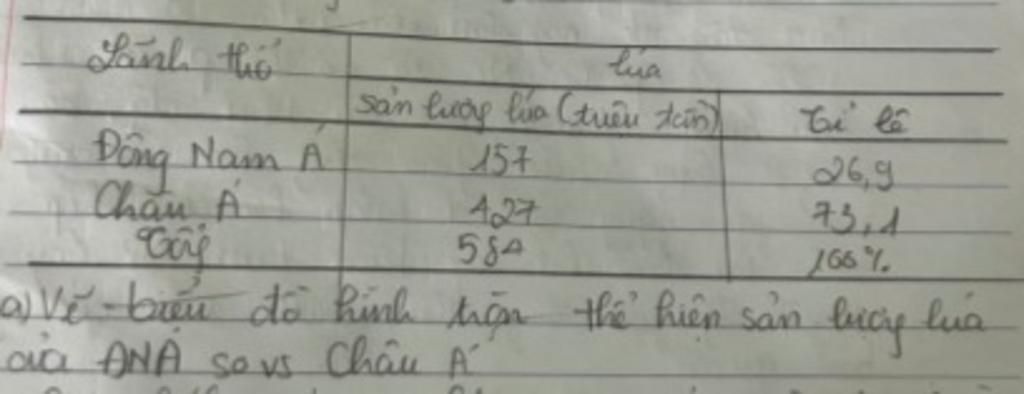 Lãnh thổ
lúa
sản lượng lúa (triệu tấn)
Tỉ lệ
Đông Nam Á 157 26,9
Châu Á 427 73,1
584 100%
a) Vẽ biểu đồ hình tròn thể hiện sản lượng lúa
của ĐNÁ so vs Châu Á